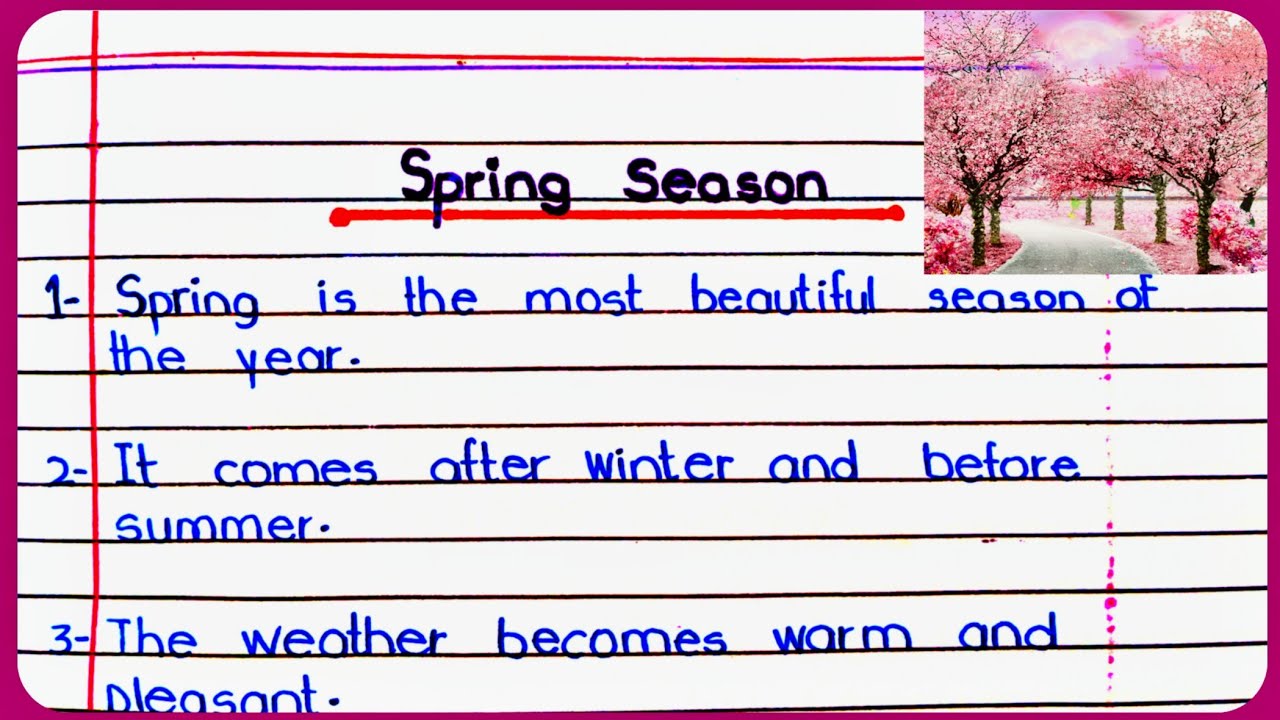 Spring Season
1- Spring is the most beautiful season of
the year.
2- It comes after winter and before
summer.
3- The weather becomes warm and
pleasant.